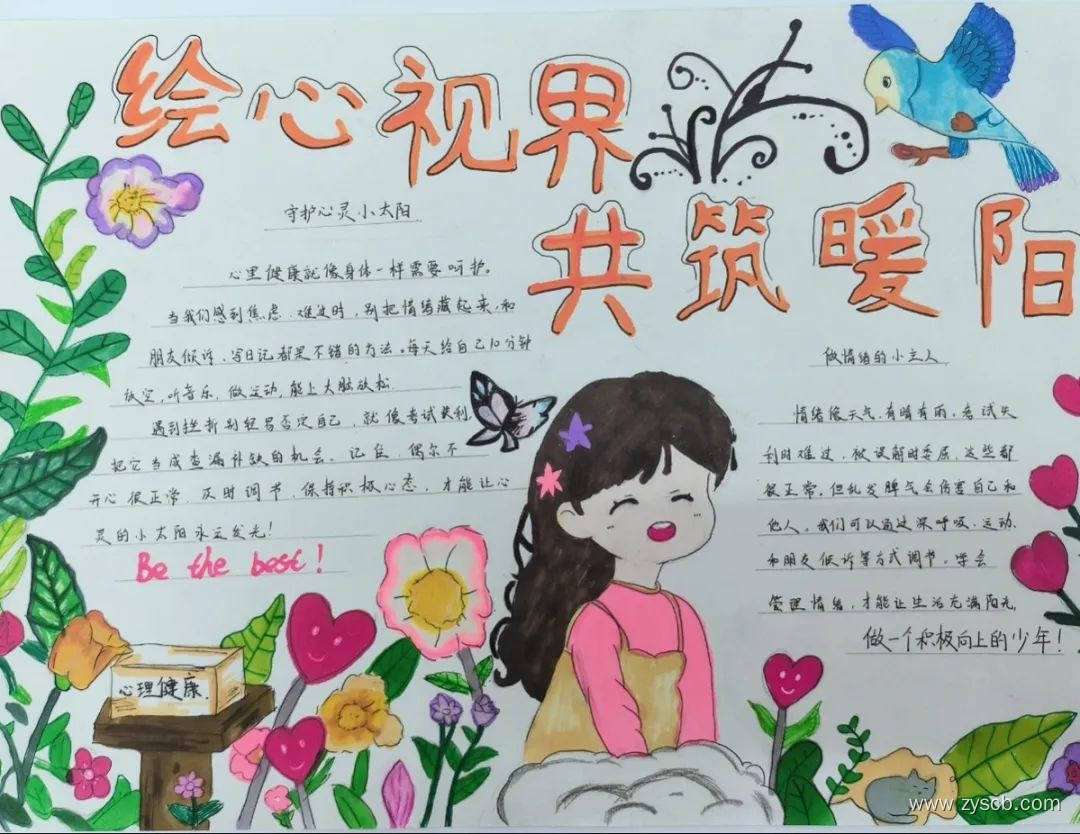 绘心视界
共筑暖阳
守护心灵小太阳
心里健康就像身体一样需要呵护。
当我们感到焦虑、难过时，别把情绪藏起来，和
朋友倾诉、写日记都是不错的方法。每天给自己10分钟
放空，听音乐，做运动，能上大脑放松。
遇到挫折别轻易否定自己，就像考试失利，
把它当成查漏补缺的机会。记住，偶尔不
开心很正常，及时调节，保持积极心态，才能让心
灵的小太阳永远发光！
Be the best!
做情绪的小主人
情绪像天气，有晴有雨，考试失
利时难过，被误解时委屈，这些都
很正常。但乱发脾气会伤害自己和
他人，我们可以通过深呼吸、运动、
和朋友倾诉等方式调节。学会
管理情绪，才能让生活充满阳光。
做一个积极向上的少年！
心理健康
www.zyscb.com